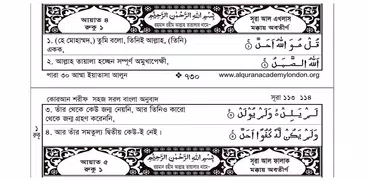 আয়াত ৪
রুকু ১
بِسْمِ اللّٰهِ الرَّحْمٰنِ الرَّحِيْمِ
রহমান রহীম আল্লাহ তায়ালার নামে-
সূরা আল এখলাস
মক্কায় অবতীর্ণ
১. (হে মোহাম্মদ,) তুমি বলো, তিনিই আল্লাহ, (তিনি)
একক,
قُلْ هُوَ اللّٰهُ اَحَدٌ
২. আল্লাহ তায়ালা হচ্ছেন সম্পূর্ণ অমুখাপেক্ষী,
اَللّٰهُ الصَّمَدُ
পারা ৩০ আম্মা ইয়াতাসা আলুন
৭৩০
www.alquranacademylondon.org
কোরআন শরীফ সহজ সরল বাংলা অনুবাদ
সূরা ১১৩ ১১৪
৩. তাঁর থেকে কেউ জন্ম নেয়নি, আর তিনিও কারো
থেকে জন্ম গ্রহণ করেননি,
لَمْ يَلِدْ وَلَمْ يُوْلَدْ
৪. আর তাঁর সমতুল্য দ্বিতীয় কেউ-ই নেই।
وَلَمْ يَكُنْ لَّهٗ كُفُوًا اَحَدٌ
আয়াত ৫
রুকু ১
بِسْمِ اللّٰهِ الرَّحْمٰنِ الرَّحِيْمِ
রহমান রহীম আল্লাহ তায়ালার নামে-
সূরা আল ফালাক
মক্কায় অবতীর্ণ